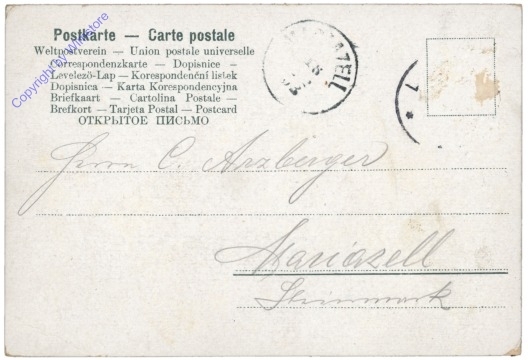 Postkarte — Carte postale
Weltpostverein — Union postale universelle
Correspondenzkarte — Dopisnice —
Levelező-Lap — Korespondenční listek
Dopisnica — Karta Korespondencyjna
Briefkaart — Cartolina Postale —
Brefkort — Tarjeta Postal — Postcard
ОТКРЫТОЕ ПИСЬМО
Copyright by WinStore
MARIAZELL
7 *
Herrn C. Arzberger
Mariazell
Steiermark